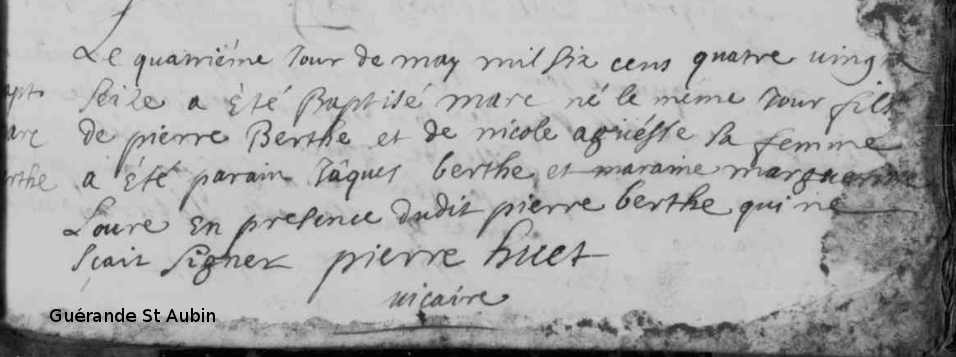 Le quatriéme Jour de may mil six cens quatre vingt
Seize a èté Baptisé marc né le méme Jour fils
de pierre Berthe et de nicole agüésse sa femme
a èté parain Jâques berthe et maraine marguerite
Loure En presence dudit pierre berthe qui ne
sçait signer pierre huet
vicaire
Guérande St Aubin